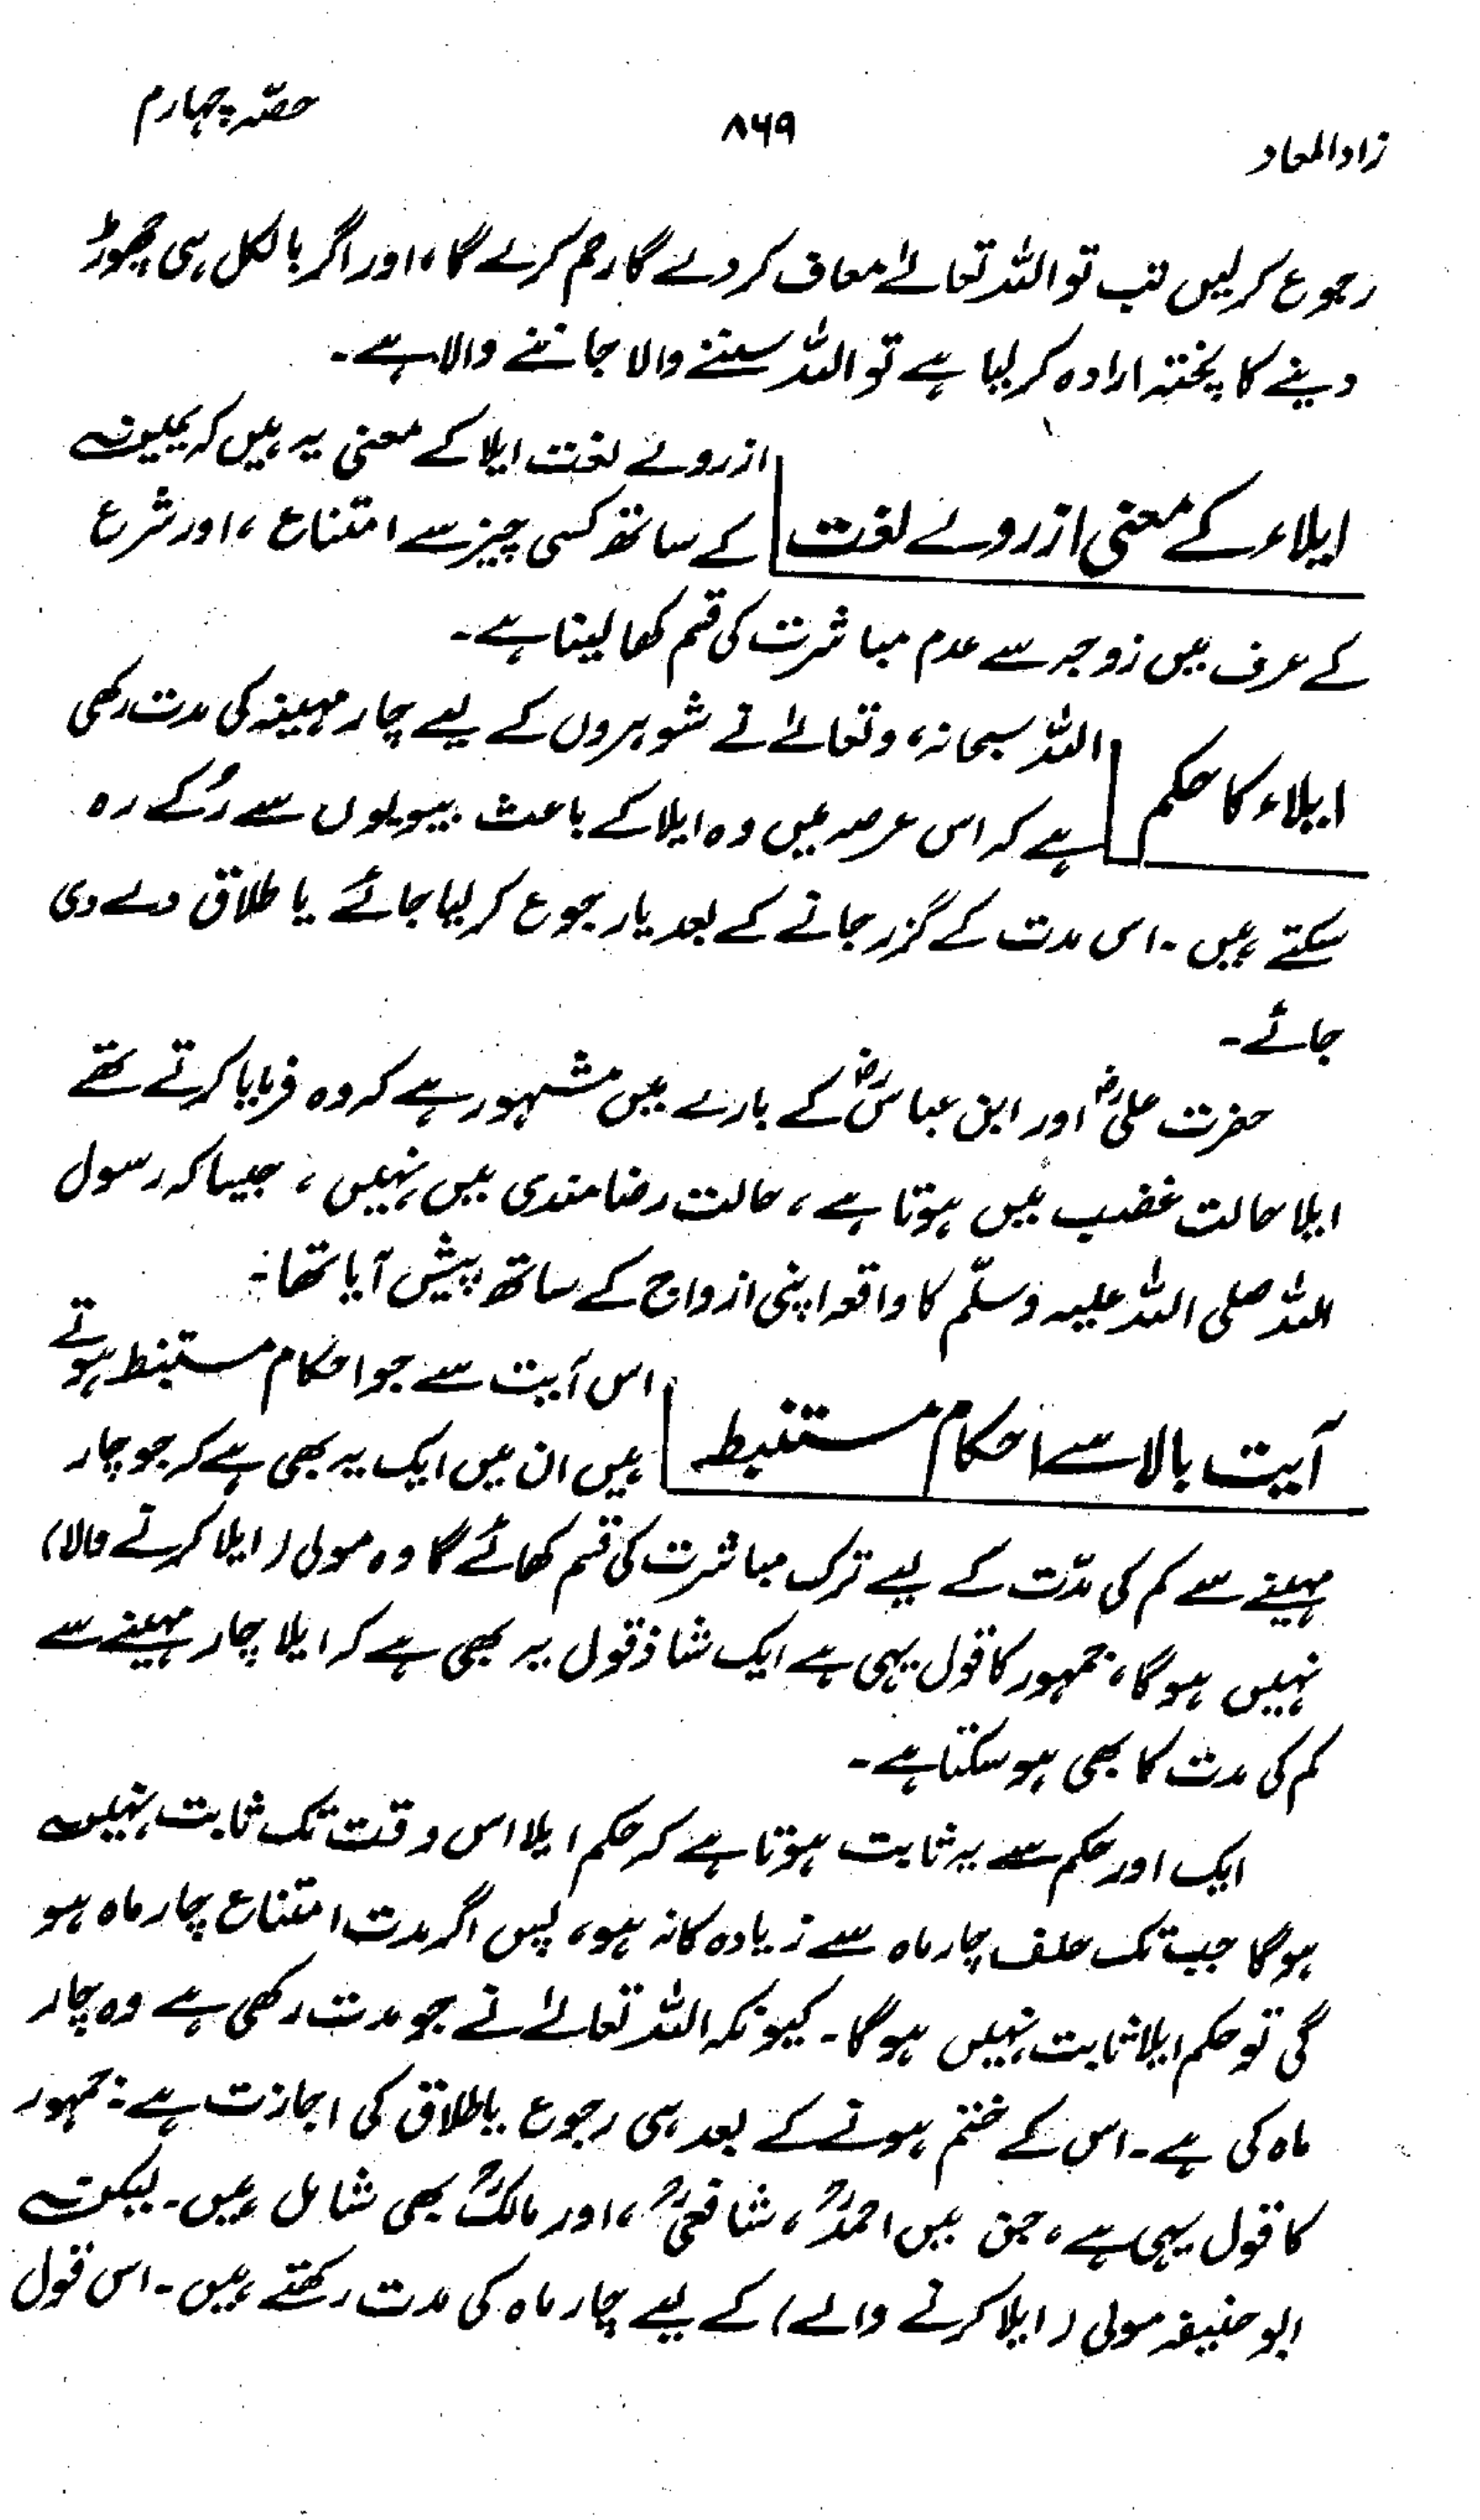 زادالمعاد
۸۶۹
حصّہ چہارم
رجوع کرلیں تب تو اللہ تعالےٰ معاف کردے گا رحم کرے گا، اور اگر بالکل ہی چھوڑ
دینے کا پختہ ارادہ کرلیا ہے تو اللہ سننے والا جاننے والا ہے۔
ایلاء کے معنی ازروئے لغت
ازروئے لغت ایلا کے معنی یہ ہیں کہ یمین
کے ساتھ کسی چیز سے امتناع، اور شرع
کے عرف میں زوجہ سے عدم مباشرت کی قسم کھا لینا ہے۔
ایلاء کا حکم
اللہ سبحانہ، وتعالےٰ نے شوہروں کے لیے چار مہینہ کی مدت رکھی
ہے کہ اس عرصہ میں وہ ایلا کے باعث بیویوں سے رُکے رہ
سکتے ہیں۔ اس مدت کے گزر جانے کے بعد یا رجوع کرلیا جائے یا طلاق دے دی
جائے۔
حضرت علیؓ اور ابن عباسؓ کے بارے میں مشہور ہے کہ وہ فرمایا کرتے تھے
ایلا حالت غضب میں ہوتا ہے، حالت رضامندی میں نہیں، جیسا کہ رسول
اللہ صلی اللہ علیہ وسلّم کا واقعہ اپنی ازواج کے ساتھ پیش آیا تھا۔
آیت بالا سے احکام مستنبط
اس آیت سے جو احکام مستنبط ہوتے
ہیں ان میں ایک یہ بھی ہے کہ جو چار
مہینے سے کم کی مدّت کے لیے ترک مباشرت کی قسم کھائے گا وہ مولی (ایلا کرنے والا)
نہیں ہوگا، جمہور کا قول یہی ہے ایک شاذ قول یہ بھی ہے کہ ایلا چار مہینے سے
کم کی مدت کا بھی ہوسکتا ہے۔
ایک اور حکم سے یہ ثابت ہوتا ہے کہ حکم ایلا اس وقت تک ثابت نہیں
ہوگا جب تک حلف چار ماہ سے زیادہ کا نہ ہو، پس اگر مدت امتناع چار ماہ ہو
گی تو حکم ایلا ثابت نہیں ہوگا۔ کیونکہ اللہ تعالےٰ نے جو مدت رکھی ہے وہ چار
ماہ کی ہے۔ اس کے ختم ہونے کے بعد ہی رجوع یا طلاق کی اجازت ہے۔ جمہور
کا قول یہی ہے، جن میں احمدؒ، شافعیؒ، اور مالکؒ بھی شامل ہیں۔ لیکن
ابو حنیفہ مولی (ایلا کرنے والے) کے لیے چار ماہ کی مدت رکھتے ہیں۔ اس قول